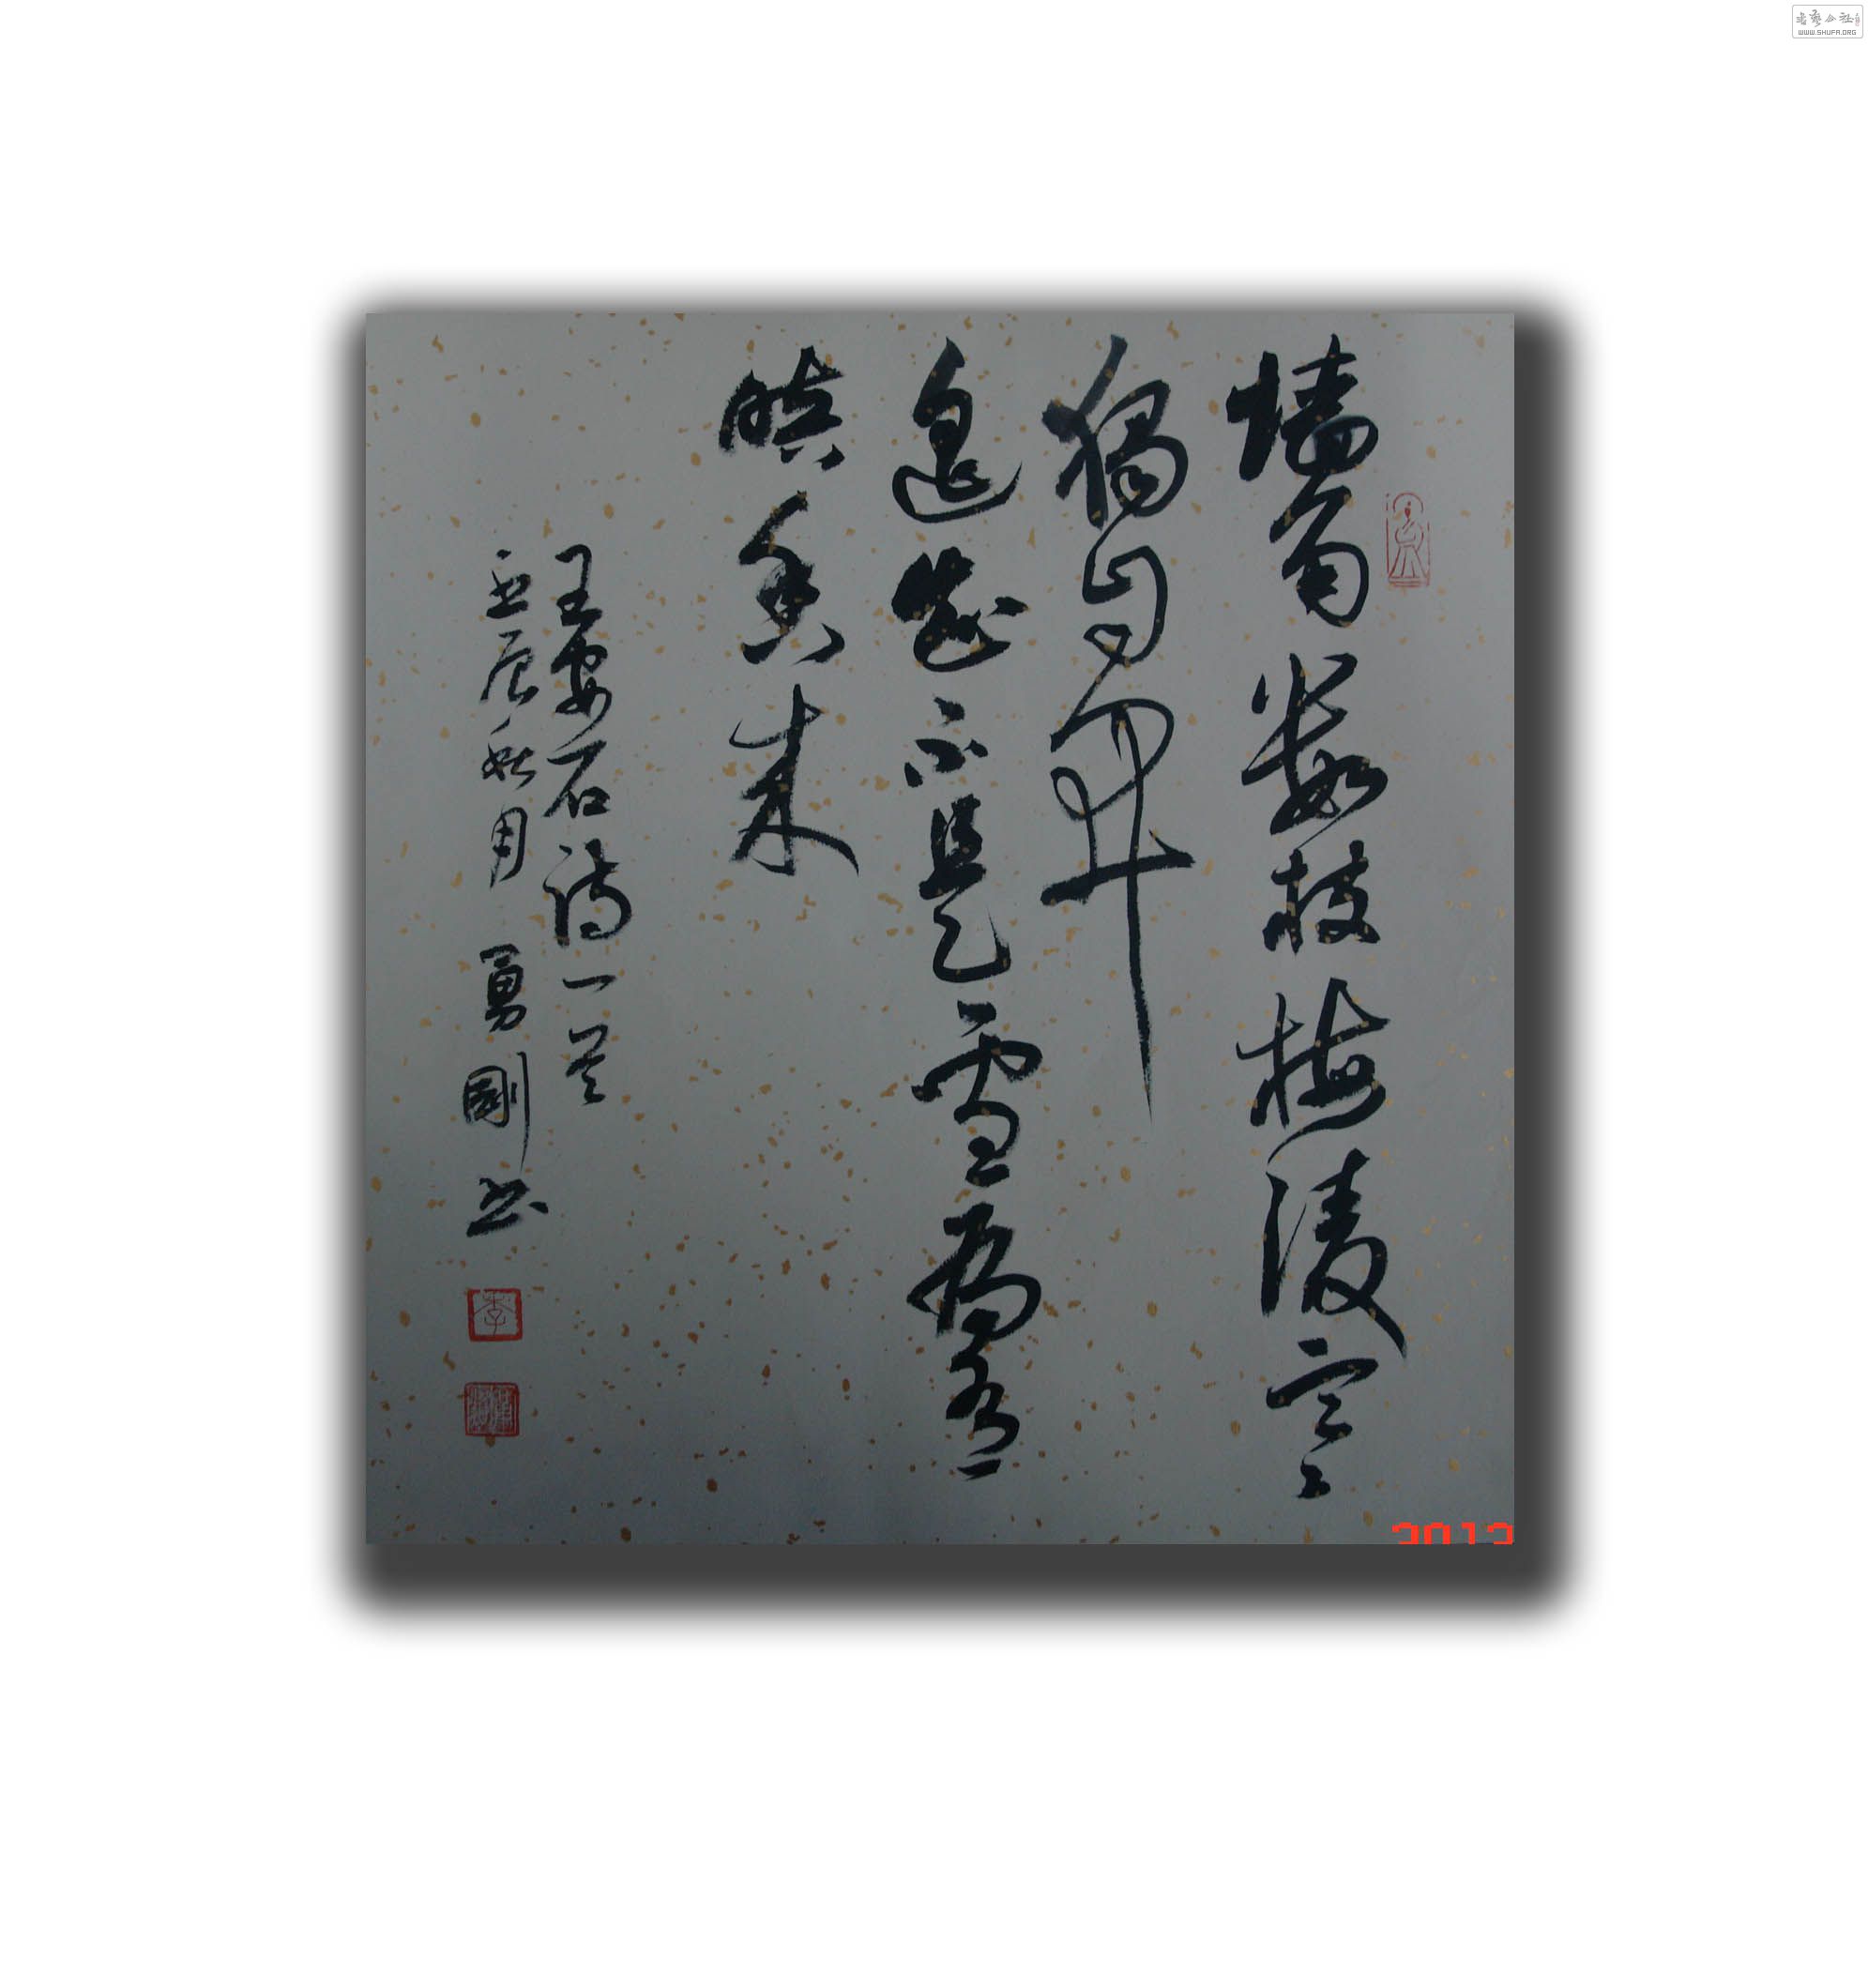 墙角數枝梅凌寒
獨自開
遥知不是雪為有
暗香来
王安石詩一首
壬辰秋月 勇剛书
李
2012
书艺公社
WWW.SHUFA.ORG